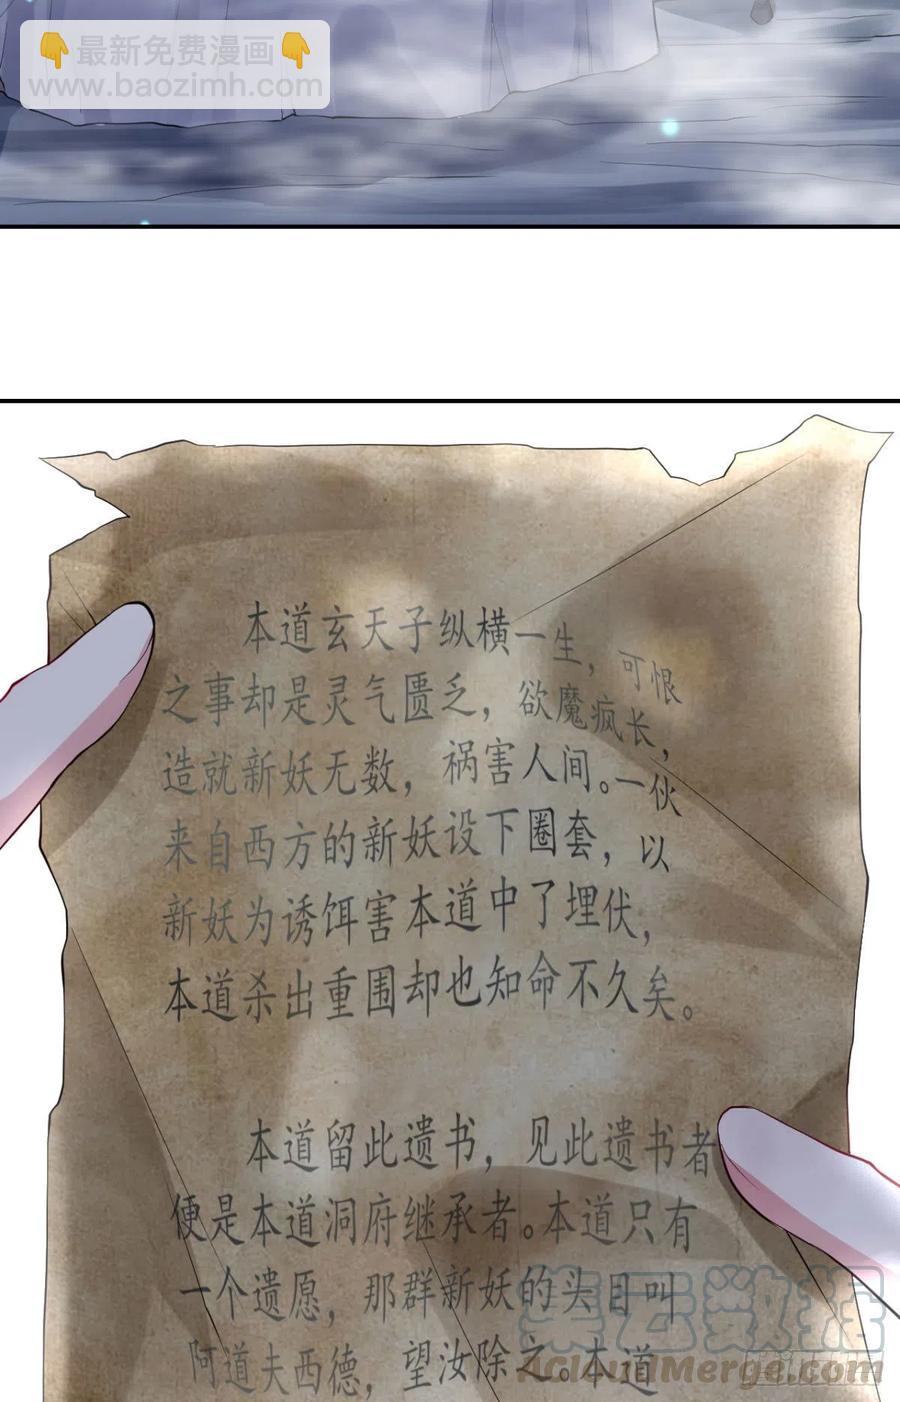 👇最新免费漫画👇
www.baozimh.com
本道玄天子纵横一生，可恨
之事却是灵气匮乏，欲魔疯长，
造就新妖无数，祸害人间。一伙
来自西方的新妖设下圈套，以
新妖为诱饵害本道中了埋伏，
本道杀出重围却也知命不久矣。
本道留此遗书，见此遗书者
便是本道洞府继承者。本道只有
一个遗愿，那群新妖的头目叫
阿道夫西德，望汝除之。本道
集云数据
AcloudMerge.com